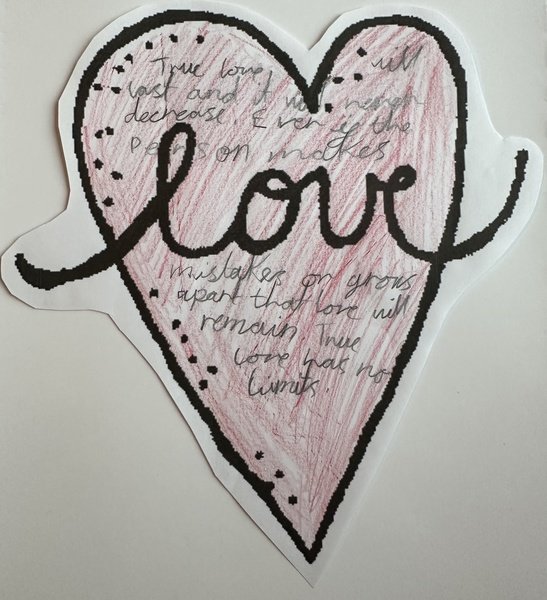 True love will
last and it will never
decrease. Even if the
person makes
love
mistakes or grows
apart that love will
remain True
love has no
limits.